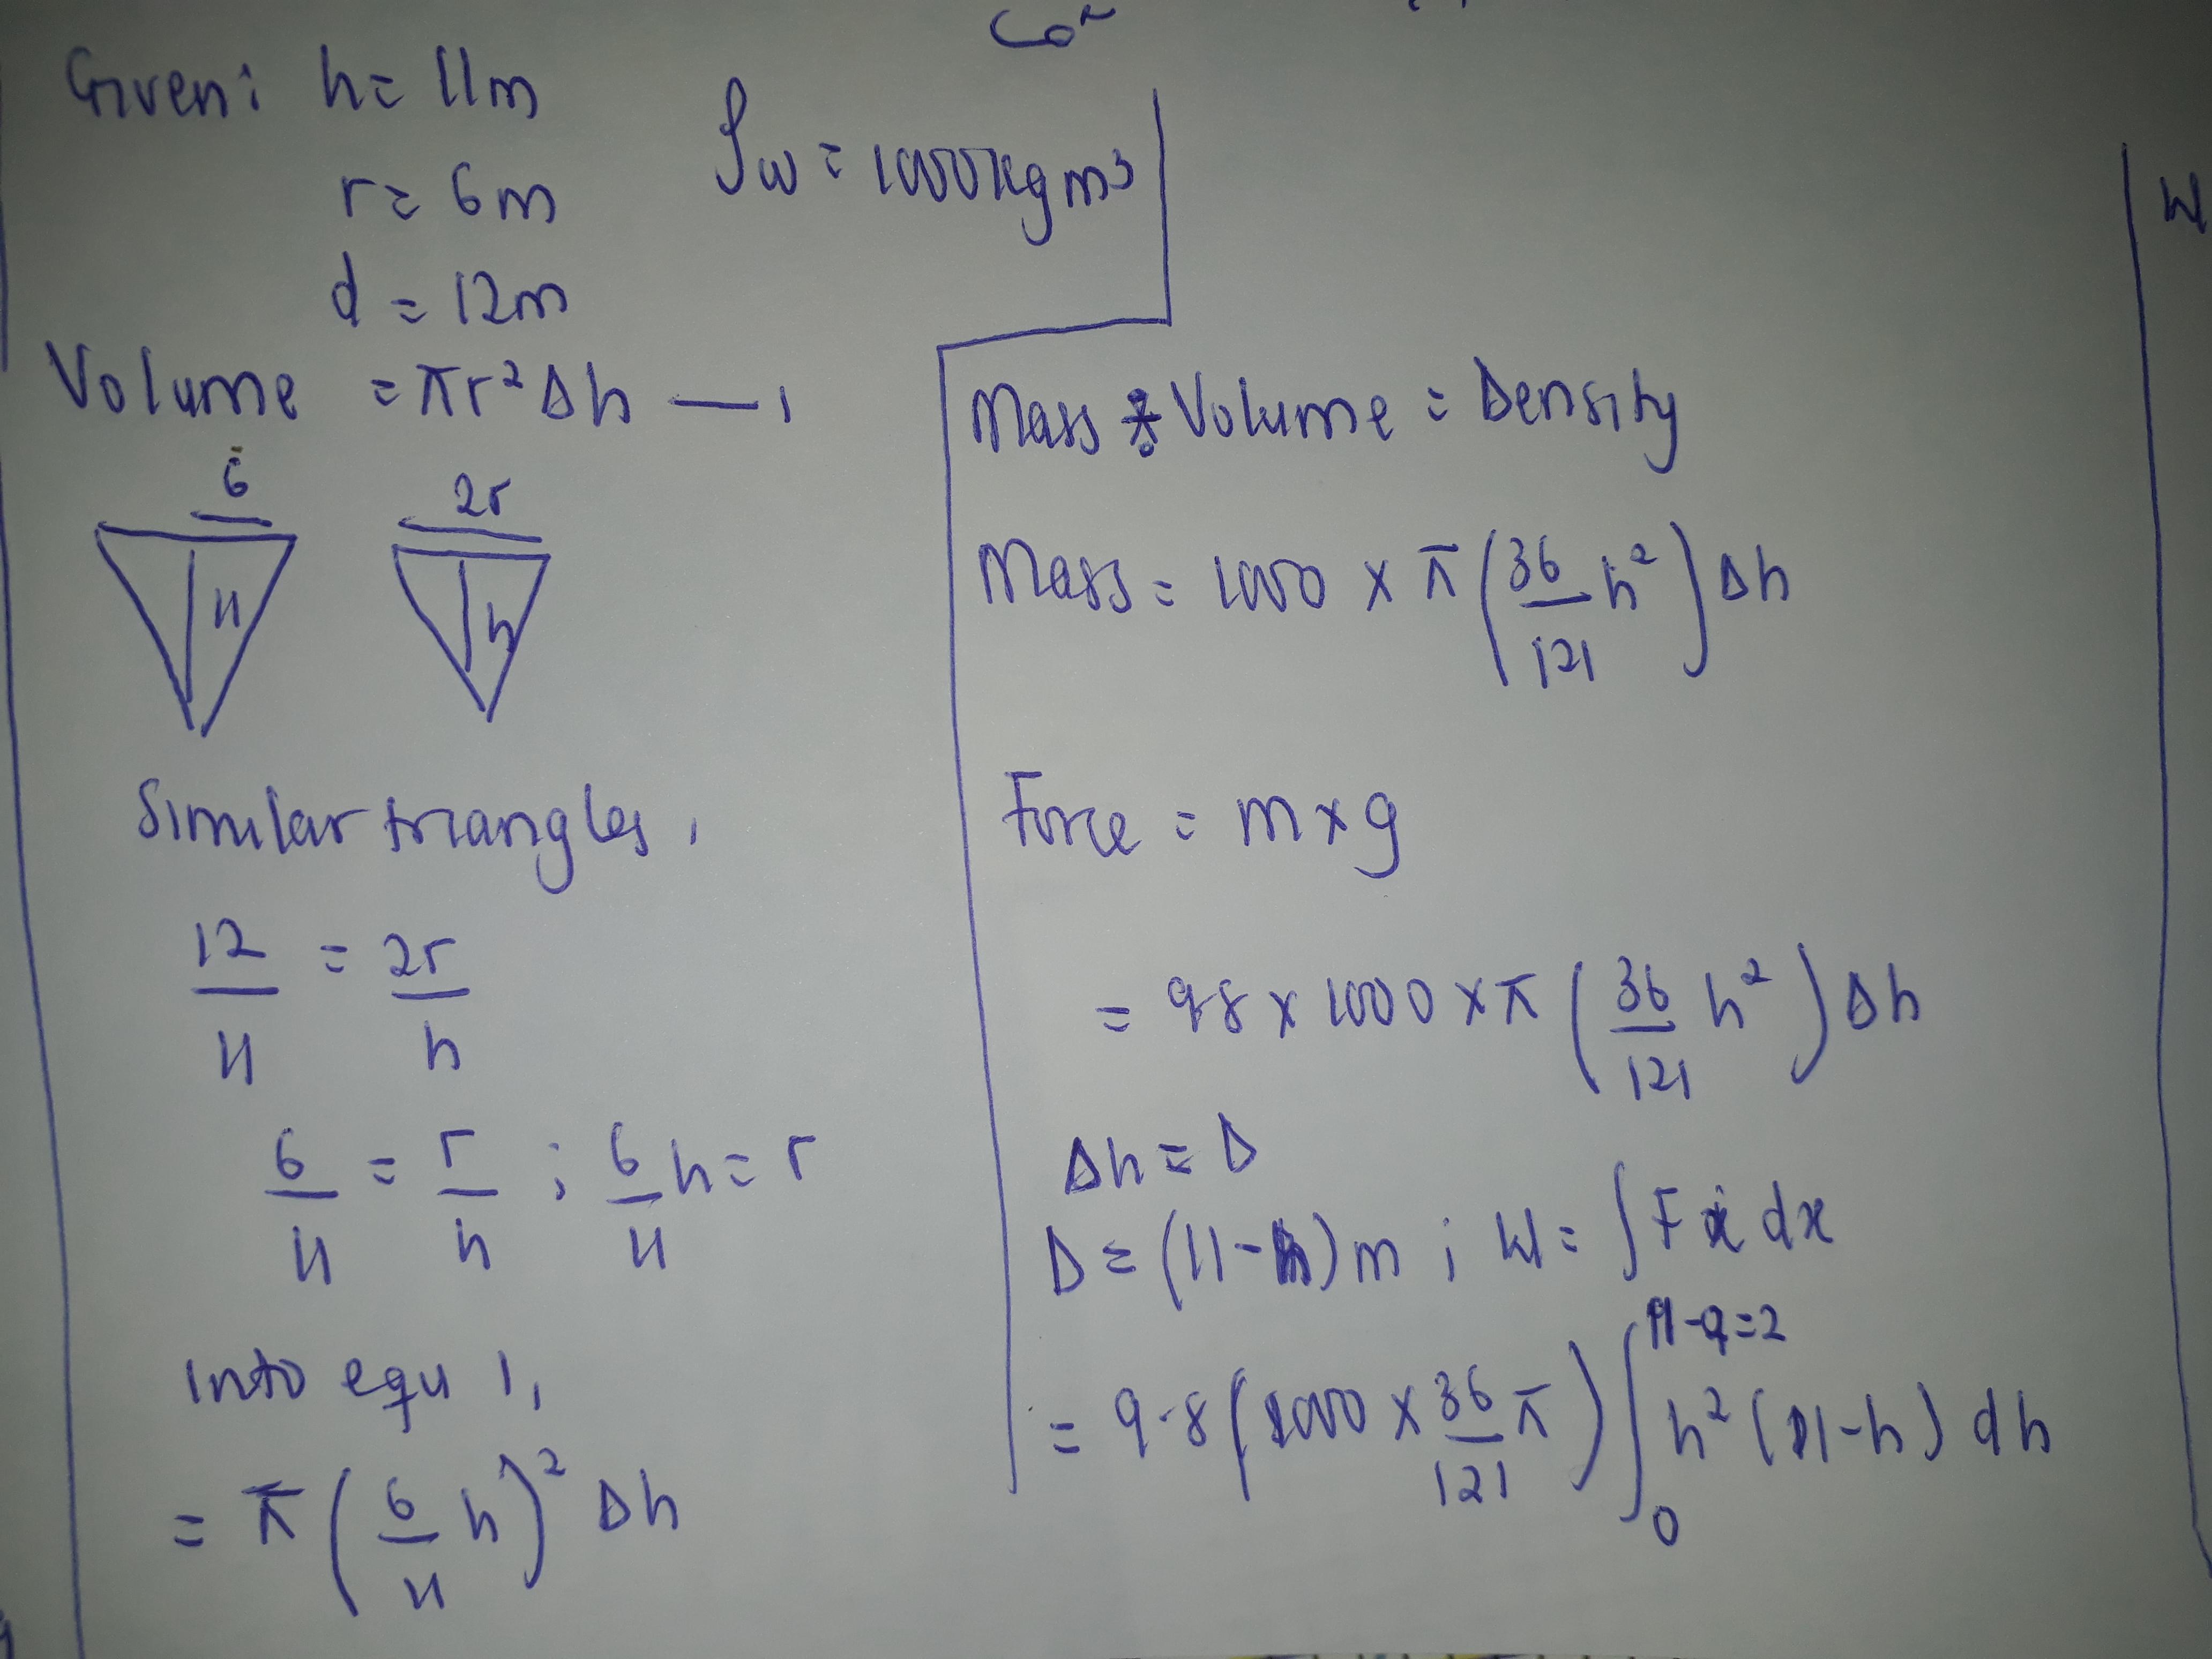 Given: h = 11m
r = 6m
d = 12m
ρw = 1000kgm3
Volume = πr²Δh — 1
6
11
2r
h
Similar triangles,
12/11 = 2r/h
6/11 = r/h ; 6/11 h = r
into equ 1,
= π(6/11 h)² Δh
Mass ÷ Volume = Density
Mass = 1000 × π(36/121 h²)Δh
Force = m × g
= 9.8 × 1000 × π(36/121 h²)Δh
Δh = D
D = (11-h)m ; W = ∫F dx
= 9.8(1000 × 36/121 π) ∫₀^(11-9=2) h²(11-h) dh
W